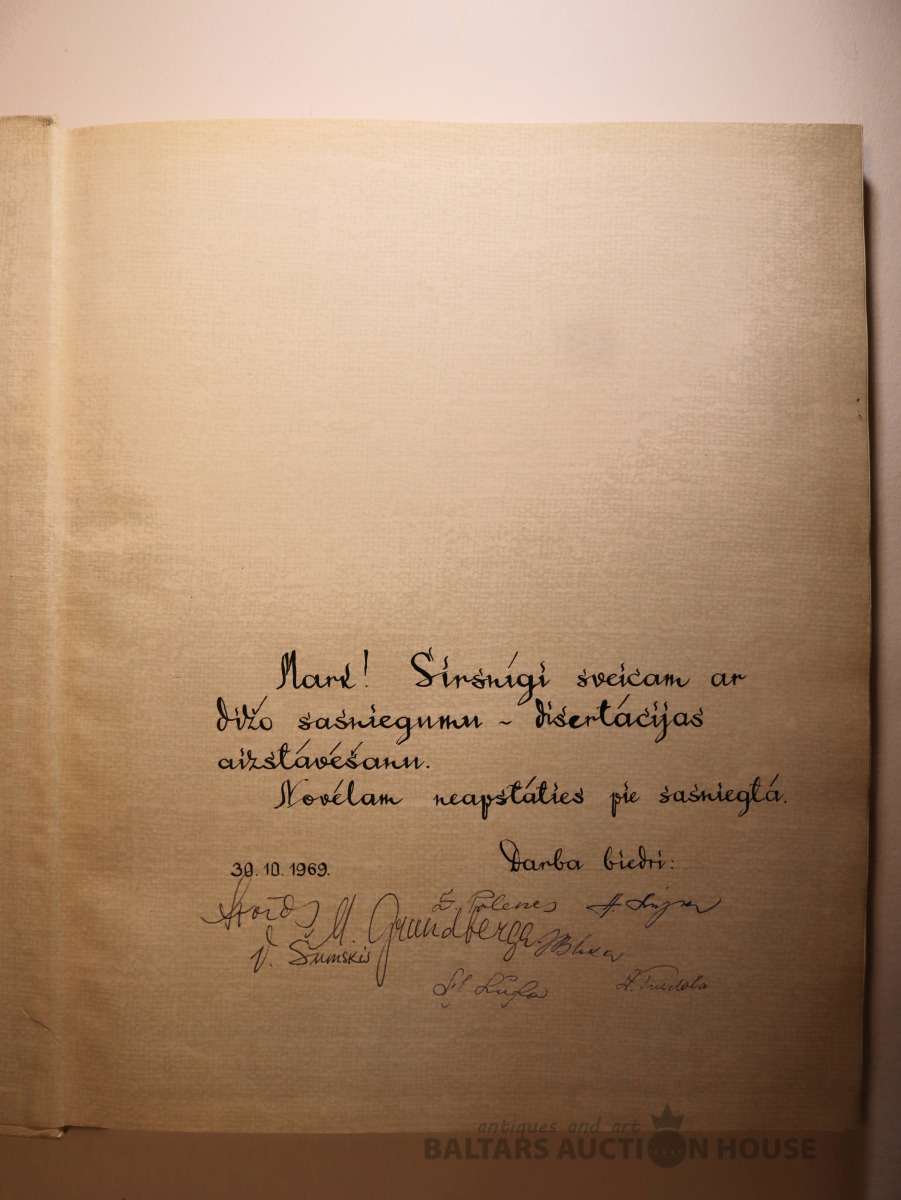 Mark! Sirsnīgi sveicam ar
dižo sasniegumu ~ disertācijas
aizstāvēšanu.
Novēlam neapstāties pie sasniegtā.
30.10.1969. Darba biedri:
M. Grundberga
V. Šumskis
antiques and art
BALTARS AUCTION HOUSE